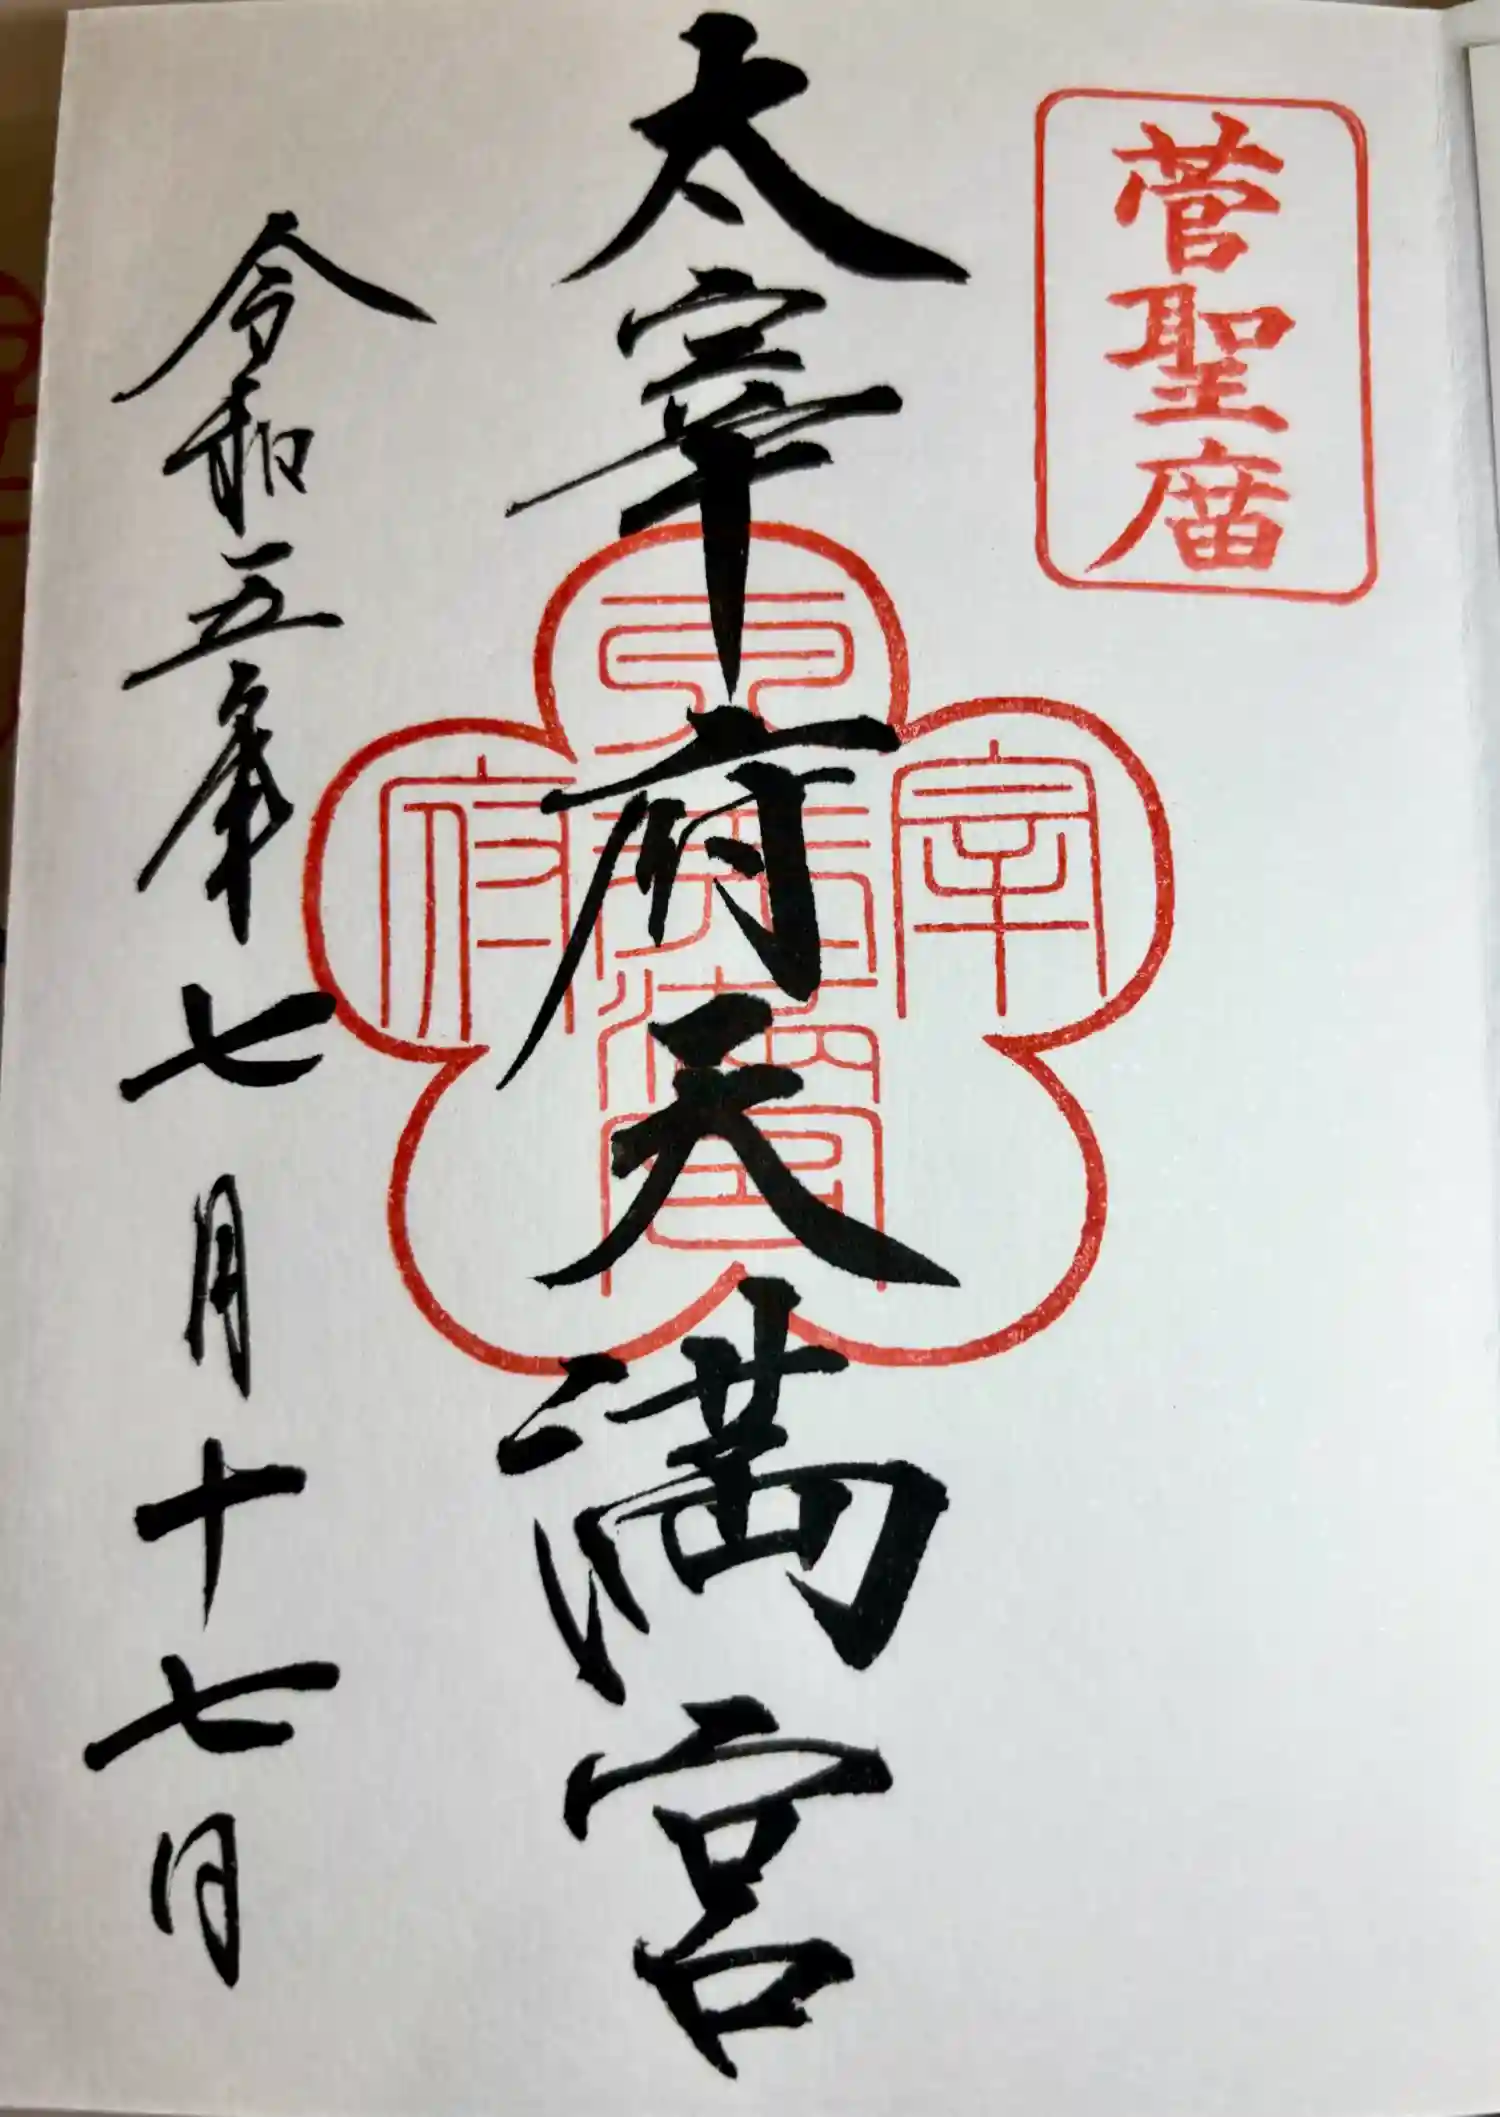 菅聖庿
太宰府天満宮
令和五年七月十七日
宰
府